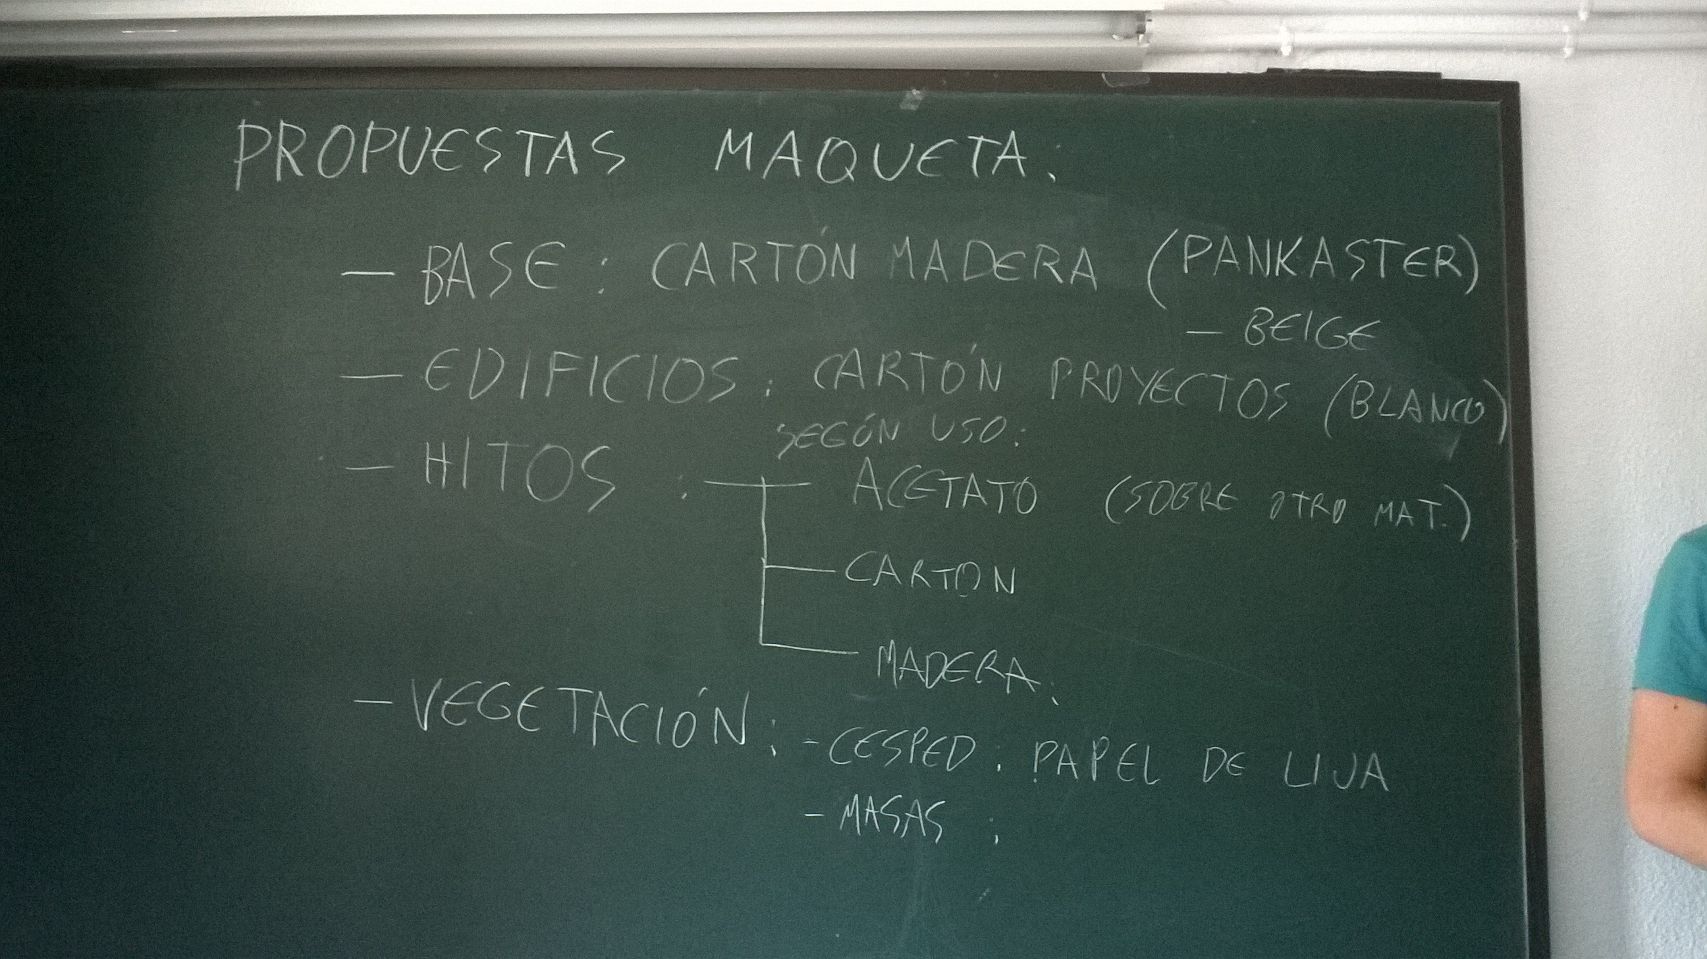 PROPUESTAS MAQUETA:
- BASE: CARTÓN MADERA (PANKASTER)
- BEIGE
- EDIFICIOS: CARTÓN PROYECTOS (BLANCO)
SEGÚN USO:
- HITOS: ACETATO (SOBRE OTRO MAT.)
CARTON
MADERA.
- VEGETACIÓN: - CESPED: PAPEL DE LIJA
- MASAS: